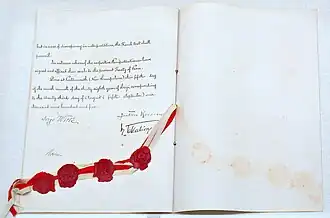 but in case of divergency in interpretation, the French text shall
prevail.
In witness whereof, the respective Plenipotentiaries have
signed and affixed their seals to the present Treaty of Peace.
Done at Portsmouth (New Hampshire) this fifth day
of the ninth month of the thirty eighth year of Meiji, corresponding
to the twenty third day of August (fifth September) one
thousand nine hundred and five.
Serge Witte
Rosen